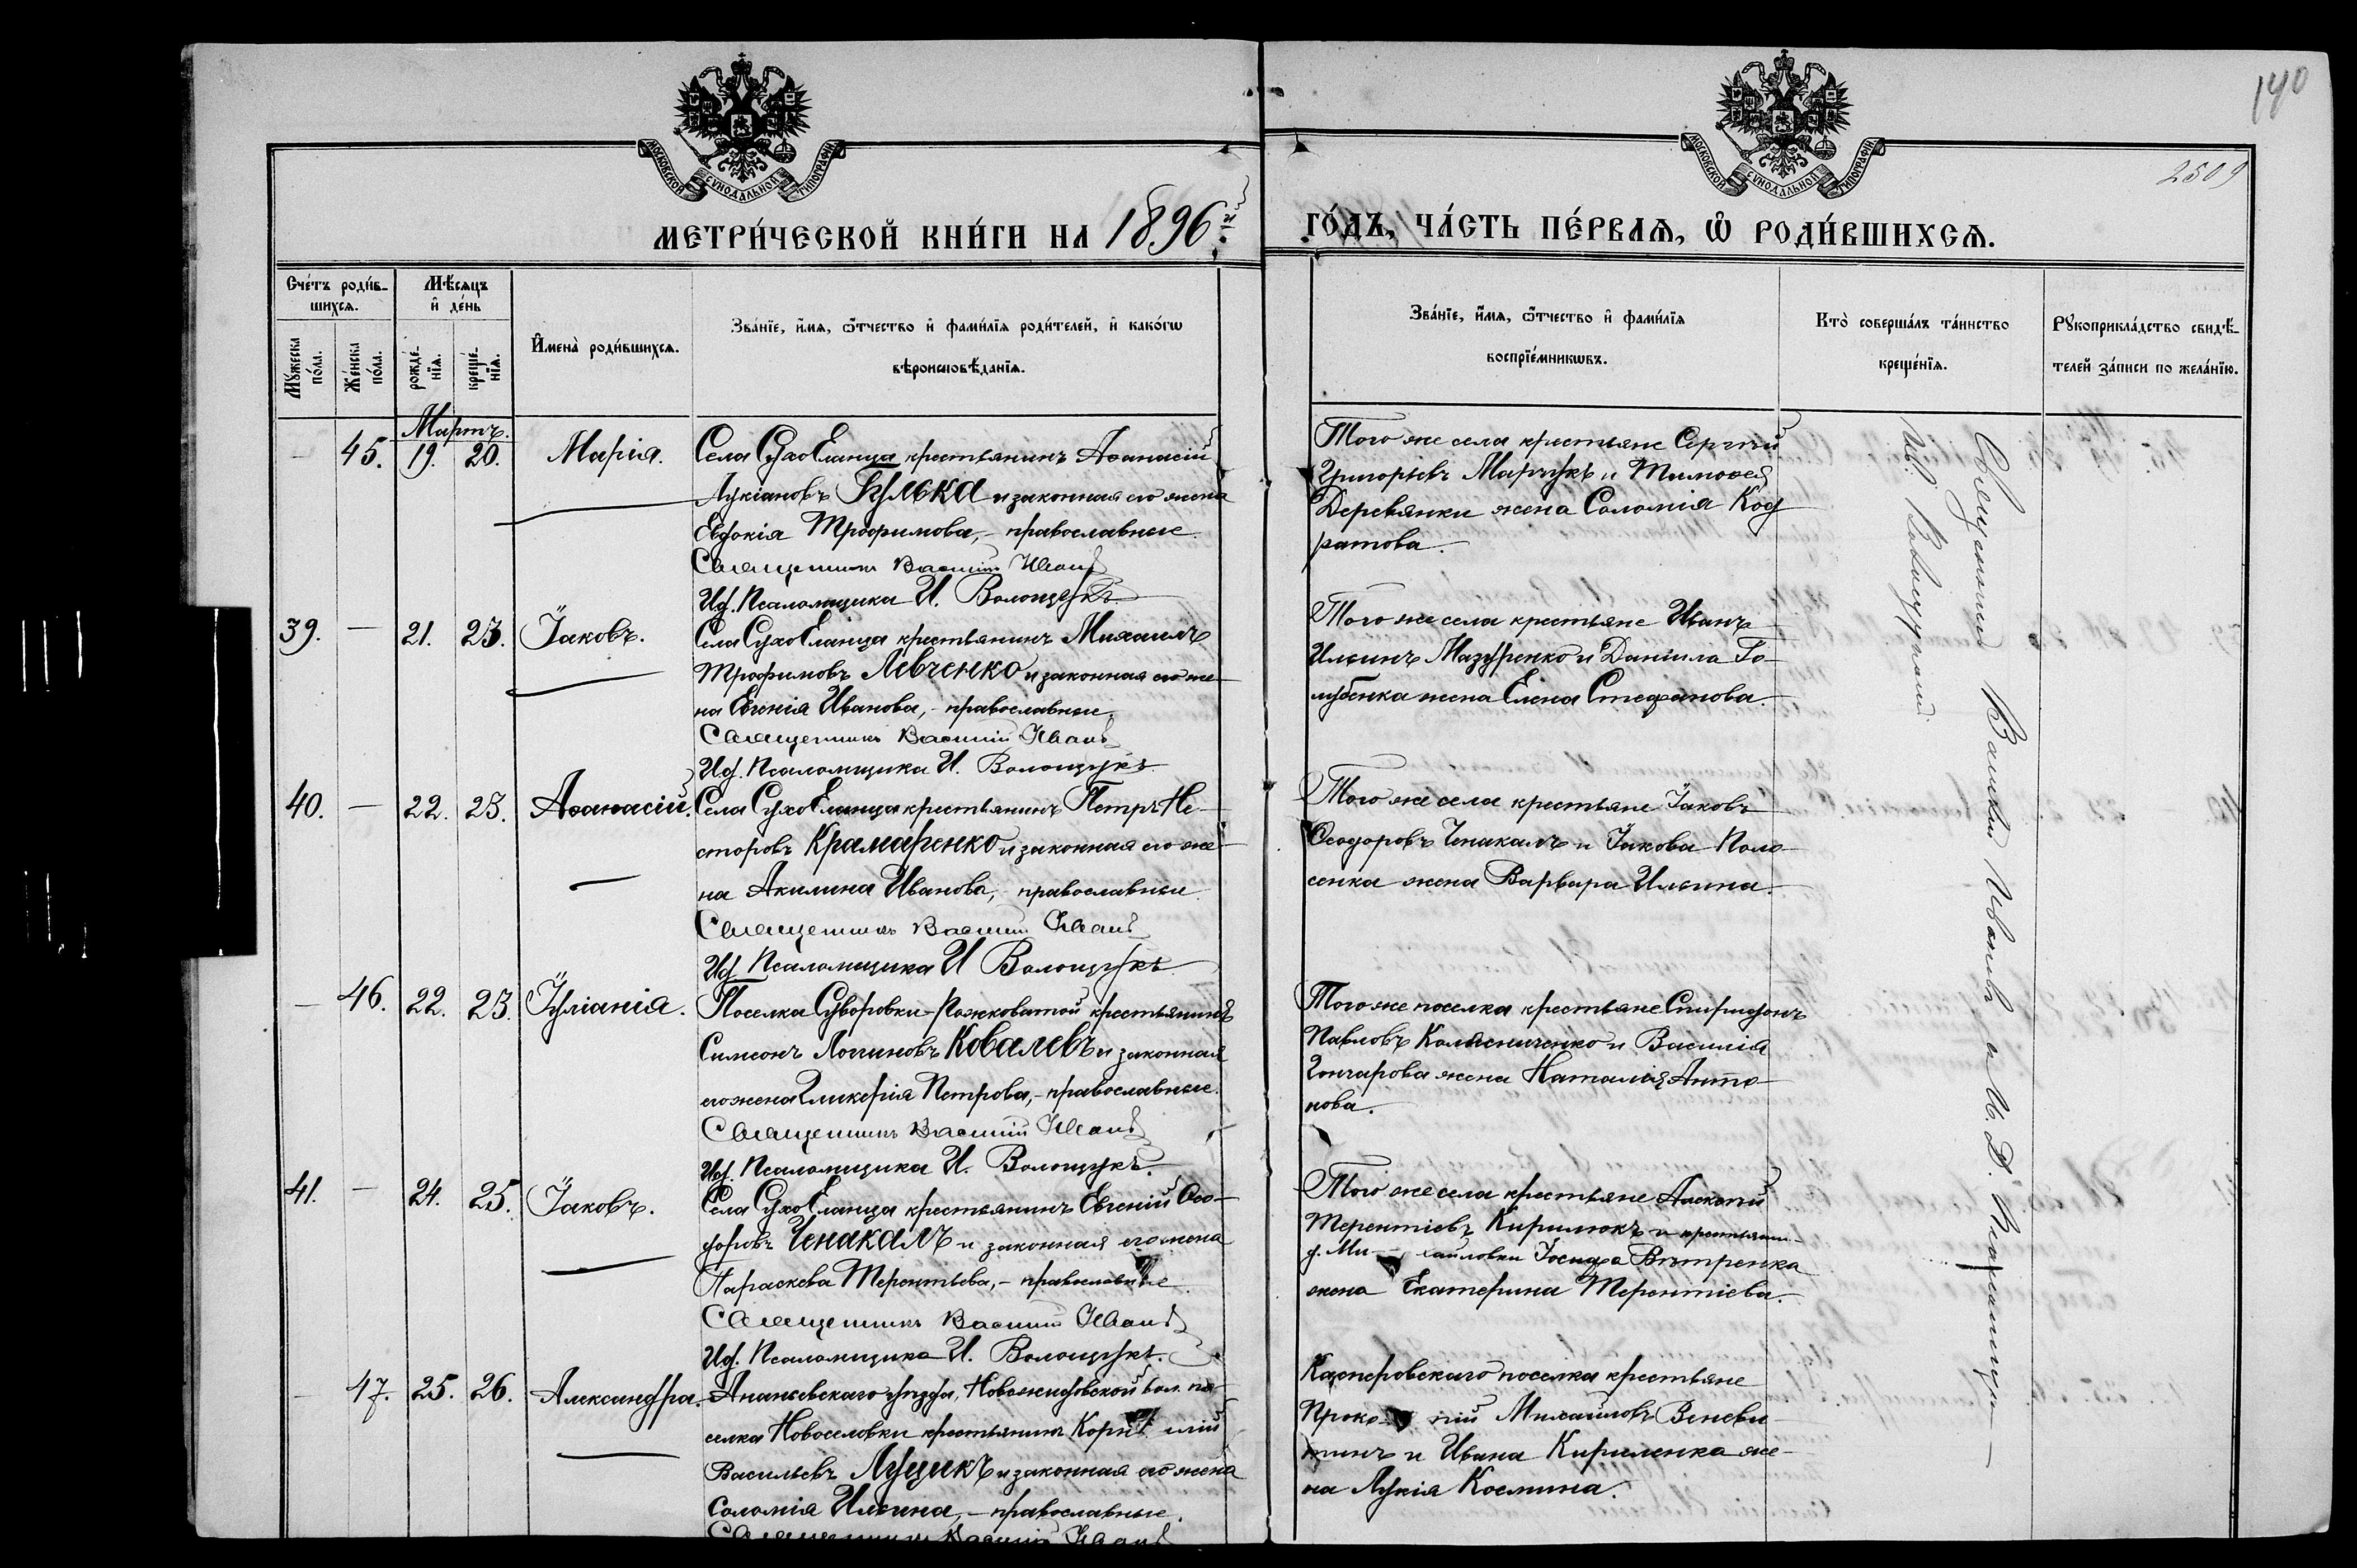 140
2509
МОСКОВСКОЙ СУНОДАЛЬНОЙ ТИПОГРАФІИ
МОСКОВСКОЙ СУНОДАЛЬНОЙ ТИПОГРАФІИ
МЕТРИ́ЧЕСКОЙ КНИ́ГИ НА 1896й
ГО́ДЪ, ЧА́СТЬ ПЕ́РВАѦ, Ѡ РОДИ́ВШИХСѦ.
Сче́тъ роди́в-
шихсѧ.
Мꙋжеска
по́ла.
Же́нска
по́ла.
Мѣ́сѧцъ
и҆ де́нь
рожде́-
нїѧ.
креще́-
нїѧ.
И҆мена̀ роди́вшихсѧ.
Зва́нїе, и҆́мѧ, ѻ҆́тчество и҆ фами́лїѧ роди́телей, и҆ како́гѡ
вѣроисповѣ́данїѧ.
Зва́нїе, и҆́мѧ, ѻ҆́тчество и҆ фами́лїѧ
воспрїе́мникѡвъ.
Кто̀ соверша́лъ та́инство
креще́нїѧ.
Рꙋкоприкла́дство свидѣ́-
телей за́писи по жела́нїю.
Мартъ.
— 45. 19. 20. Марія.
Села СухоЕланца крестьянинъ Аѳанасій
Лукіановъ Кулька и законная его жена
Евдокія Трофимова,- православные.
Священникъ Василій Ивановъ
И.д. Псаломщика И. Волощукъ.
Того же села крестьяне Сергѣй
Григорьевъ Марчукъ и Тимоѳея
Деревянки жена Соломія Код
ратова.
39. — 21. 23. Іаковъ.
Села СухоЕланца крестьянинъ Михаилъ
Трофимовъ Левченко и законная его же-
на Евгенія Иванова,- православные.
Священникъ Василій Ивановъ
И.д. Псаломщика И. Волощукъ.
Того же села крестьяне Иванъ
Ильинъ Мазуренко и Даніила Го-
лубенка жена Елена Стефанова.
40. — 22. 23. Аѳанасій.
Села СухоЕланца крестьянинъ Петръ Не-
сторовъ Крамаренко и законная его же-
на Акилина Иванова,- православные.
Священникъ Василій Ивановъ
И.д. Псаломщика И Волощукъ
Того же села крестьяне Іаковъ
Ѳеодоровъ Ченакалъ и Іакова Поло-
сенка жена Варвара Ильина.
— 46. 22. 23. Іуліанія.
Поселка Суворовки-Рожковатой крестьянинъ
Симеонъ Логиновъ Ковалевъ и законная
его жена Гликерія Петрова,- православные.
Священникъ Василій Ивановъ
И.д. Псаломщика И. Волощукъ.
Того же поселка крестьяне Спиридонъ
Павловъ Колесниченко и Василія
Гончарова жена Наталія Анто-
нова.
41. — 24. 25. Іаковъ.
Села СухоЕланца крестьянинъ Евгеній Ѳео-
доровъ Ченакалъ и законная его жена
Параскева Терентьева,- православные.
Священникъ Василій Ивановъ
И.д. Псаломщика И. Волощукъ.
Того же села крестьяне Алексѣй
Терентіевъ Кирилюкъ и крестьянин-
д. Ми- хайловки Іосифа Вѣтренка
жена Екатерина Терентіева.
— 47. 25. 26. Александра.
Ананьевскаго уѣзда, Новожидовской вол. по-
селка Новоселовки крестьянинъ Корни лій
Васильевъ Луцикъ и законная его жена
Соломія Ильина,- православные.
Священникъ Василій Ивановъ
Касперовскаго поселка крестьяне
Проко пій Михаиловъ Веневи-
тинъ и Ивана Кириленка же-
на Лукія Космина.
Священникъ Василій Ивановъ и И. Д. Псаломщика